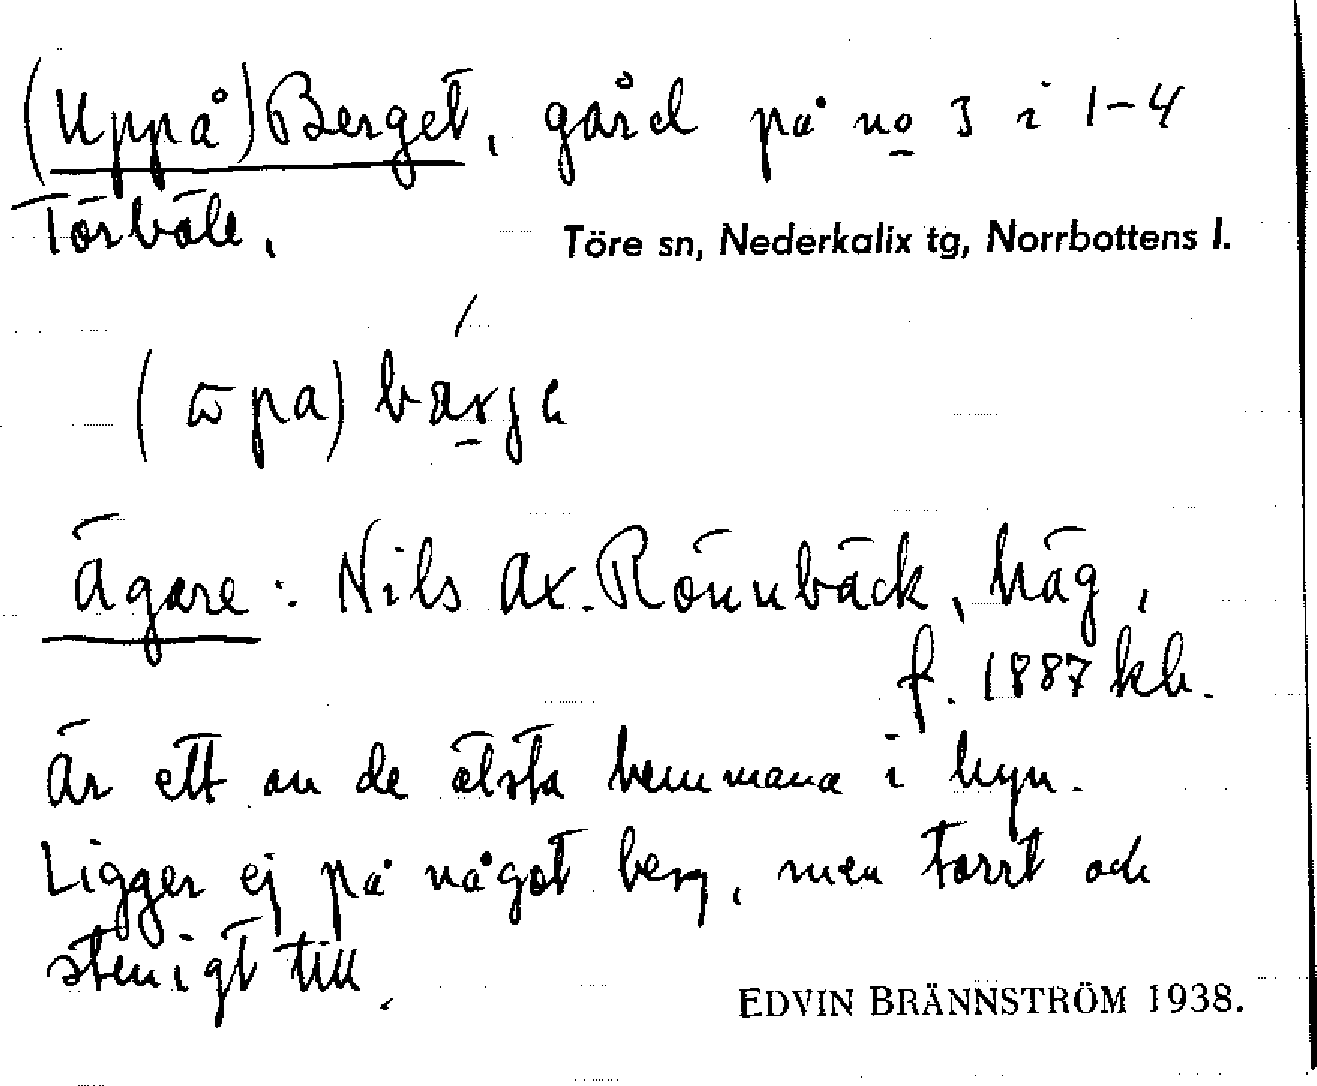 (Uppå) Berget, gård på no 3 i 1-4
Törböle.
Töre sn, Nederkalix tg, Norrbottens l.
pa)
Ägare: Nils Ax. Rönnbäck, häg,
f. 1887 kb.
Är ett av de älsta hemmana i byn.
Ligger ej på något berg, men torrt och
stenigt till.
EDVIN BRÄNNSTRÖM 1938.